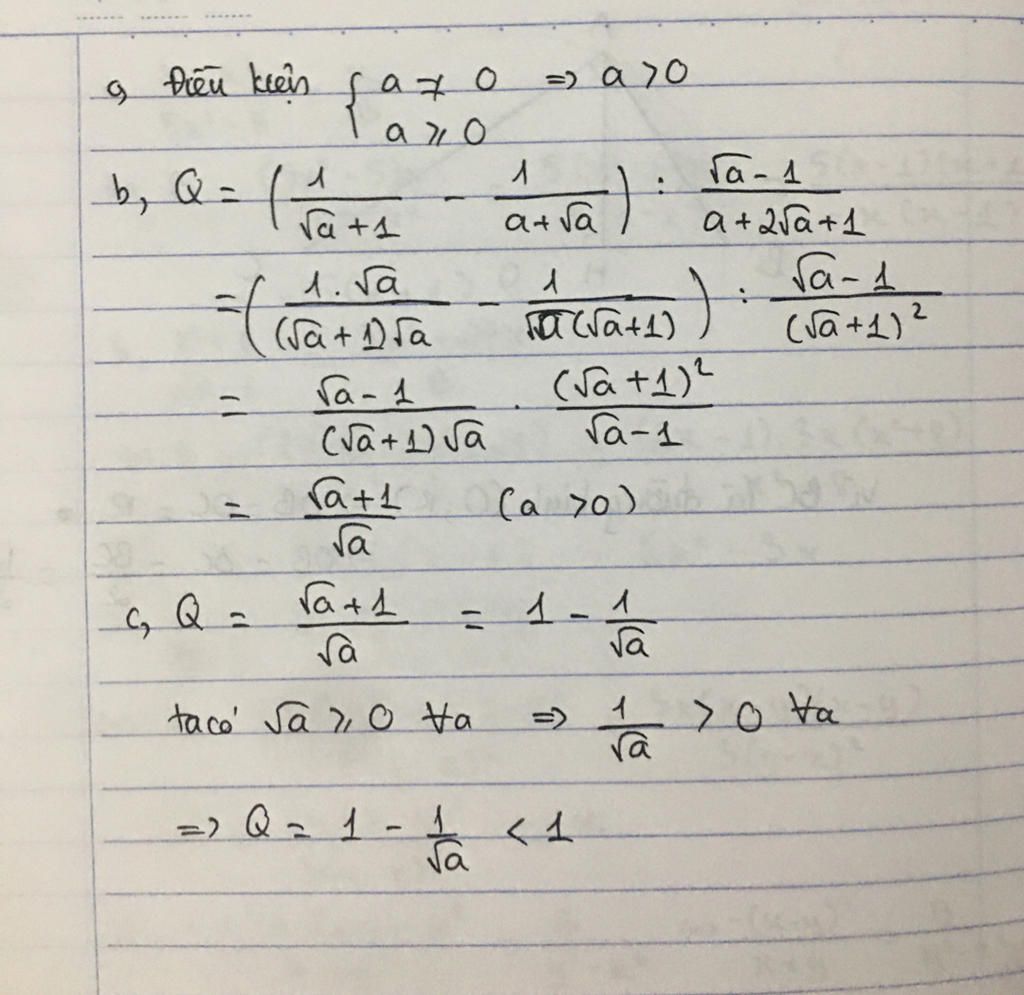 a, Điều kiện { a ≠ 0 ⇒ a > 0
a ⩾ 0
b, Q = ( 1/(√a + 1) - 1/(a + √a) ) : (√a - 1)/(a + 2√a + 1)
= ( (1.√a)/((√a + 1)√a) - 1/(√a(√a + 1)) ) : (√a - 1)/(√a + 1)²
= (√a - 1)/((√a + 1)√a) . (√a + 1)²/(√a - 1)
= (√a + 1)/√a (a > 0)
c, Q = (√a + 1)/√a = 1 - 1/√a
ta có √a ⩾ 0 ∀a ⇒ 1/√a > 0 ∀a
⇒ Q = 1 - 1/√a < 1